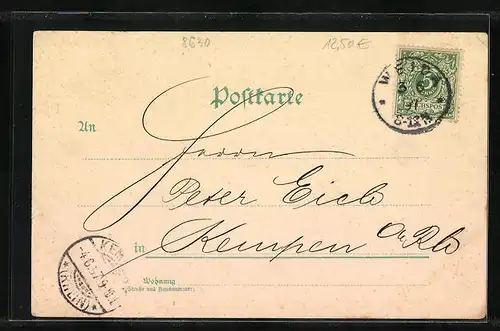 8630 12,50 €
Postkarte
5
An
Herrn
Peter Eich
in Kempen a/Rh
Wohnung
(Straße und Hausnummer)